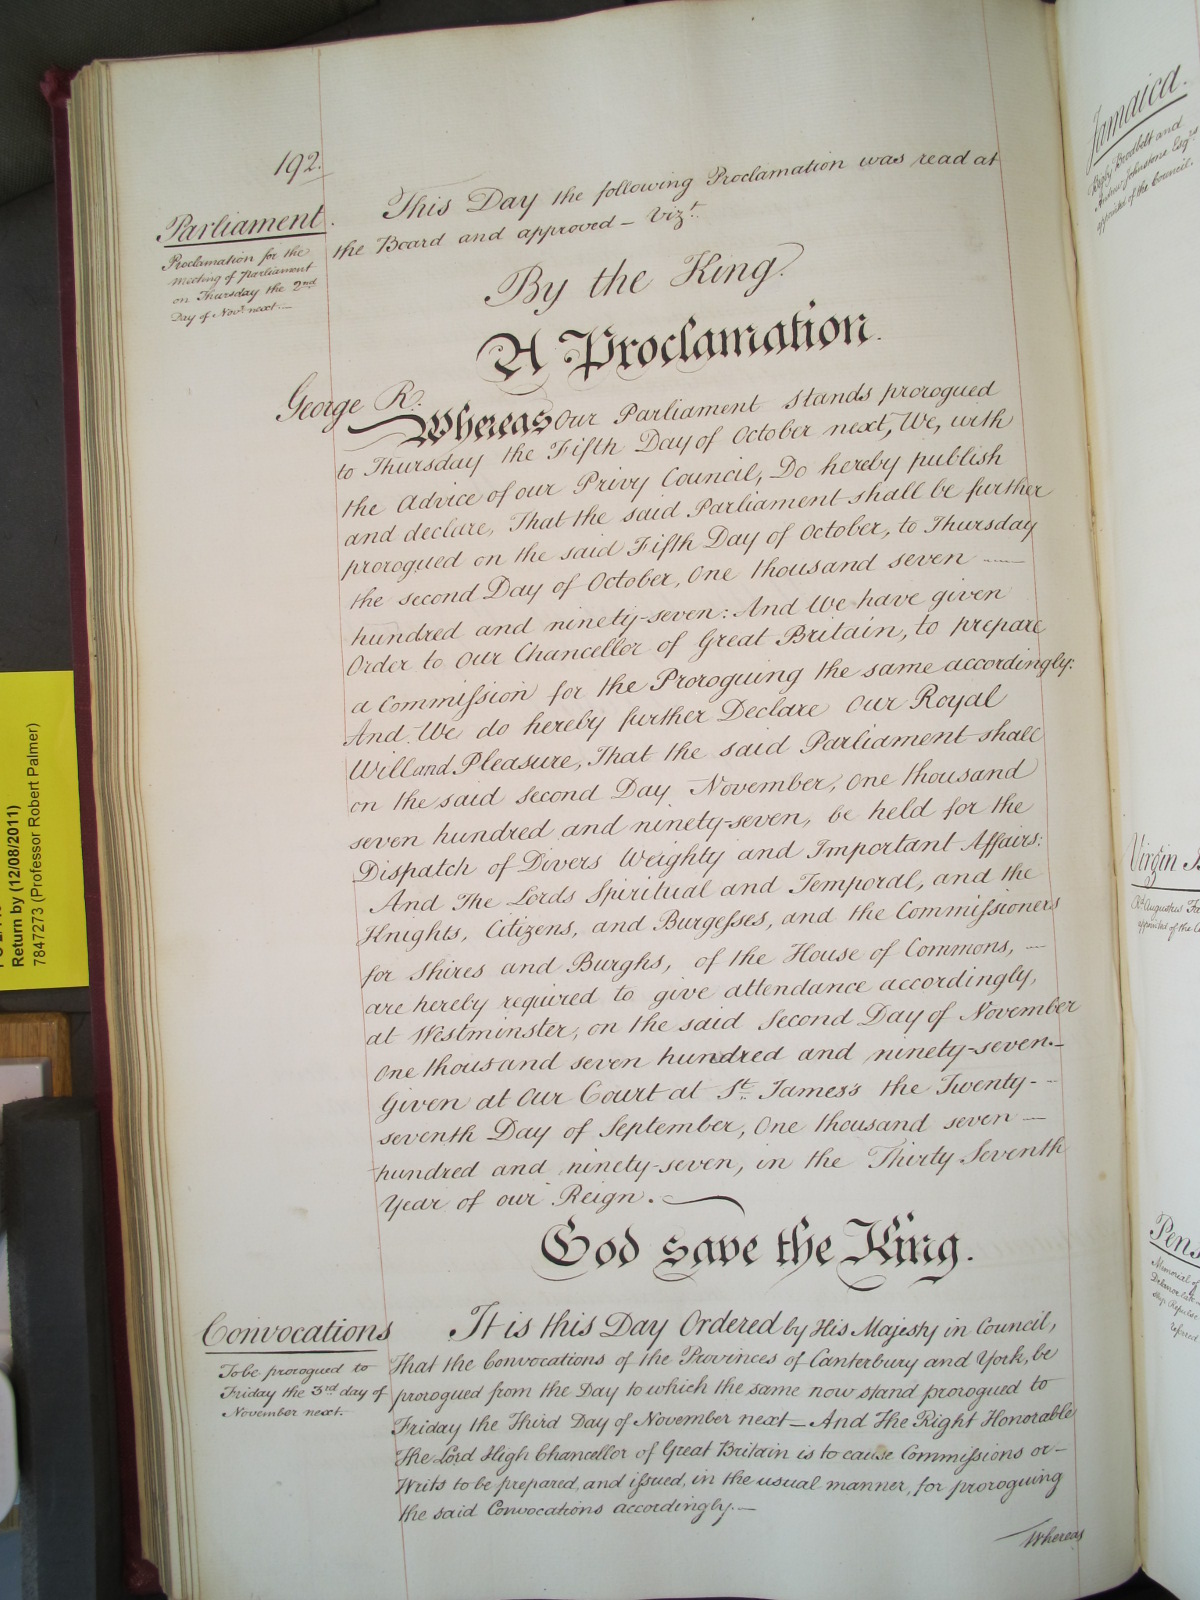 192.
Parliament.
Proclamation for the
Meeting of Parliament
on Thursday the 2nd
Day of Novr. next.—
This Day the following Proclamation was read at
the Board and approved – Vizt.
By the King.
A Proclamation.
George R.
Whereas Our Parliament stands prorogued
to Thursday the Fifth Day of October next, We, with
the Advice of our Privy Council, Do hereby publish
and declare, That the said Parliament shall be further
prorogued on the said Fifth Day of October, to Thursday
the second Day of October, One thousand seven
hundred and ninety-seven: And We have given
Order to Our Chancellor of Great Britain, to prepare
a Commission for the Proroguing the same accordingly:
And We do hereby further Declare Our Royal
Will and Pleasure, That the said Parliament shall
on the said Second Day November, One thousand
seven hundred and ninety-seven, be held for the
Dispatch of Divers Weighty and Important Affairs:
And The Lords Spiritual and Temporal, and the
Knights, Citizens, and Burgesses, and the Commissioners
for Shires and Burghs, of the House of Commons, —
are hereby required to give attendance accordingly,
at Westminster, on the said Second Day of November
One thousand seven hundred and ninety-seven.–
Given at Our Court at St. James's the Twenty-
seventh Day of September, One thousand seven —
hundred and ninety-seven, in the Thirty Seventh
Year of our Reign.
God save the King.
Convocations
To be prorogued to
Friday the 3rd day of
November next.
It is this Day Ordered by His Majesty in Council,
That the Convocations of the Provinces of Canterbury and York, be
prorogued from the Day to which the same now stand prorogued to
Friday the Third Day of November next — And The Right Honorable
The Lord High Chancellor of Great Britain is to cause Commissions or –
Writs to be prepared, and issued, in the usual manner, for proroguing
the said Convocations accordingly.—
Whereas
Jamaica.
Rigby Brodbelt and
Andrew Johnstone Esqrs
appointed of the Council.
Virgin
Augustus
appointed of the
Pens
Memorial of
referred
Return by (12/08/2011)
7847273 (Professor Robert Palmer)